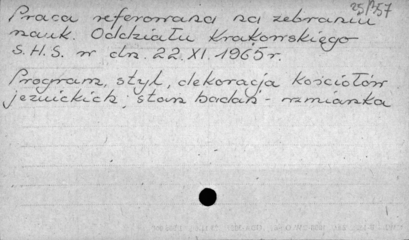 25/B/57
Praca referowana na zebraniu
nauk. Oddziału Krakowskiego
S.H.S. w dn. 22.XI.1965r.
Program, styl, dekoracja kościołów
jezuickich; stan badań - wzmianka